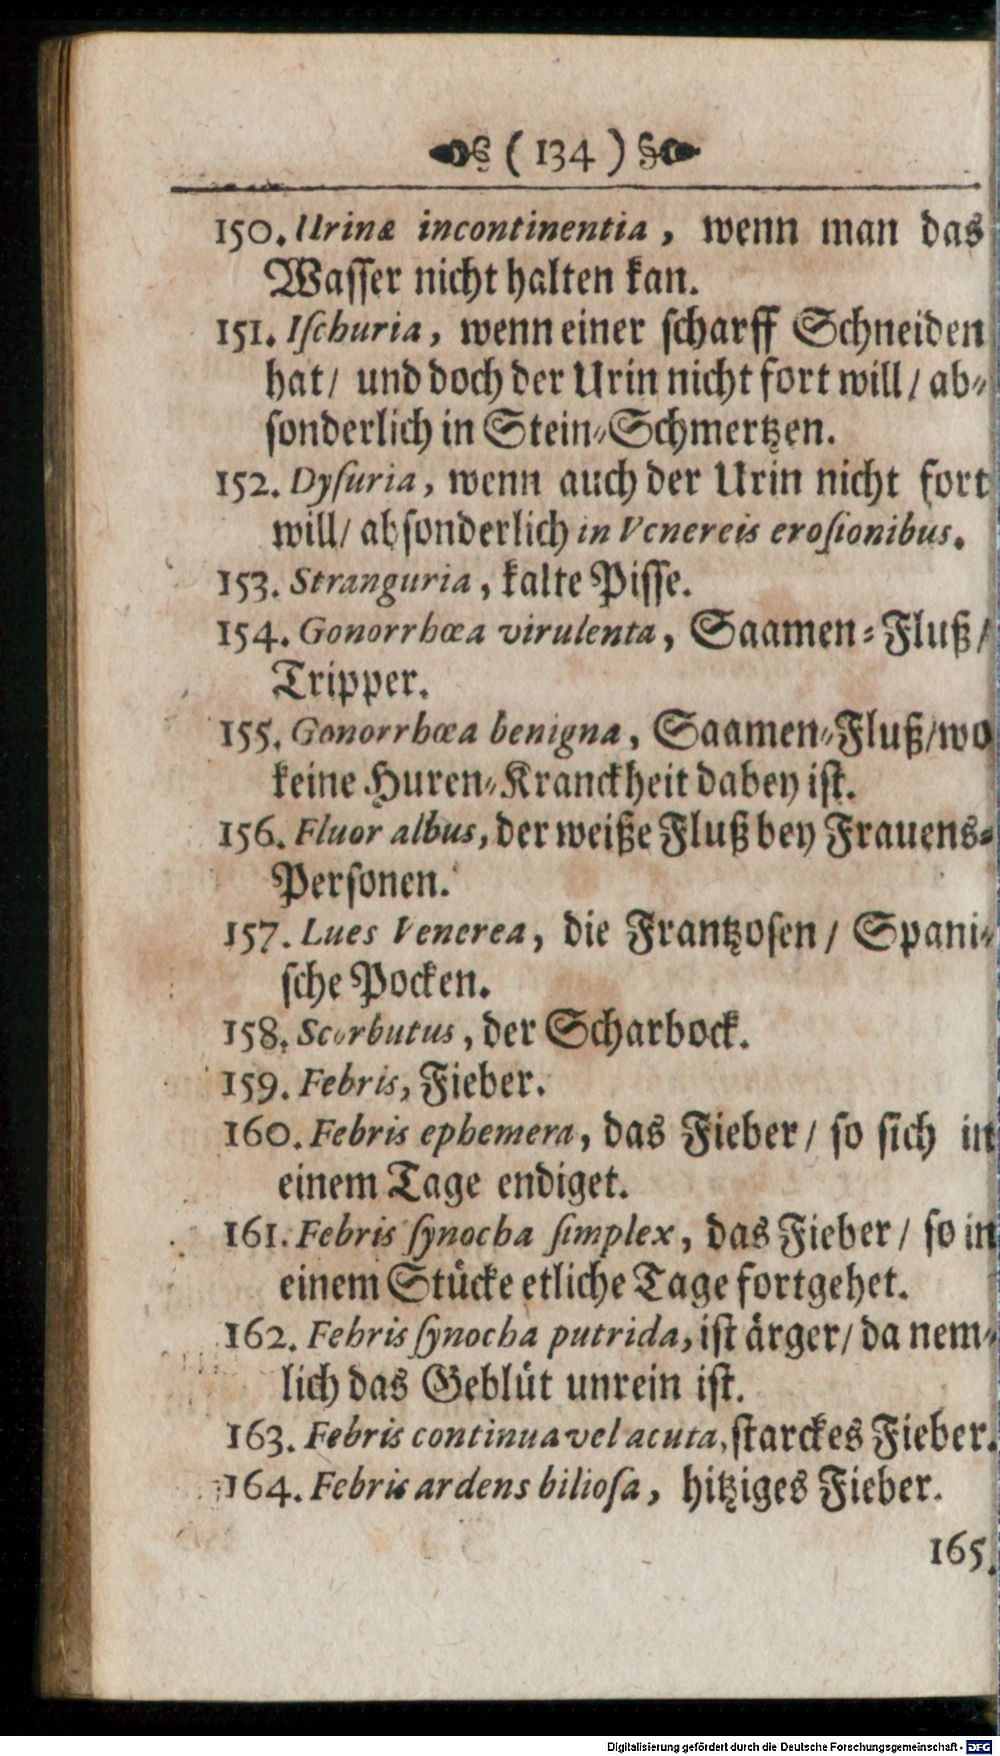 ( 134 )
150. Urinæ incontinentia, wenn man das
Waſſer nicht halten kan.
151. Iſchuria, wenn einer ſcharff Schneiden
hat/ und doch der Urin nicht fort will/ ab-
ſonderlich in Stein-Schmertzen.
152. Dyſuria, wenn auch der Urin nicht fort
will/ abſonderlich in Venereis eroſionibus.
153. Stranguria, kalte Piſſe.
154. Gonorrhœa virulenta, Saamen-Fluß/
Tripper.
155. Gonorrhœa benigna, Saamen-Fluß/wo
keine Huren-Kranckheit dabey iſt.
156. Fluor albus, der weiße Fluß bey Frauens-
Perſonen.
157. Lues Venerea, die Frantzoſen/ Spani-
ſche Pocken.
158. Scorbutus, der Scharbock.
159. Febris, Fieber.
160. Febris ephemera, das Fieber/ ſo ſich in
einem Tage endiget.
161. Febris ſynocha ſimplex, das Fieber/ ſo in
einem Stücke etliche Tage fortgehet.
162. Febris ſynocha putrida, iſt ärger/ da nem-
lich das Geblüt unrein iſt.
163. Febris continua vel acuta, ſtarckes Fieber.
164. Febris ardens bilioſa, hitziges Fieber.
165.
Digitalisierung gefördert durch die Deutsche Forschungsgemeinschaft - DFG